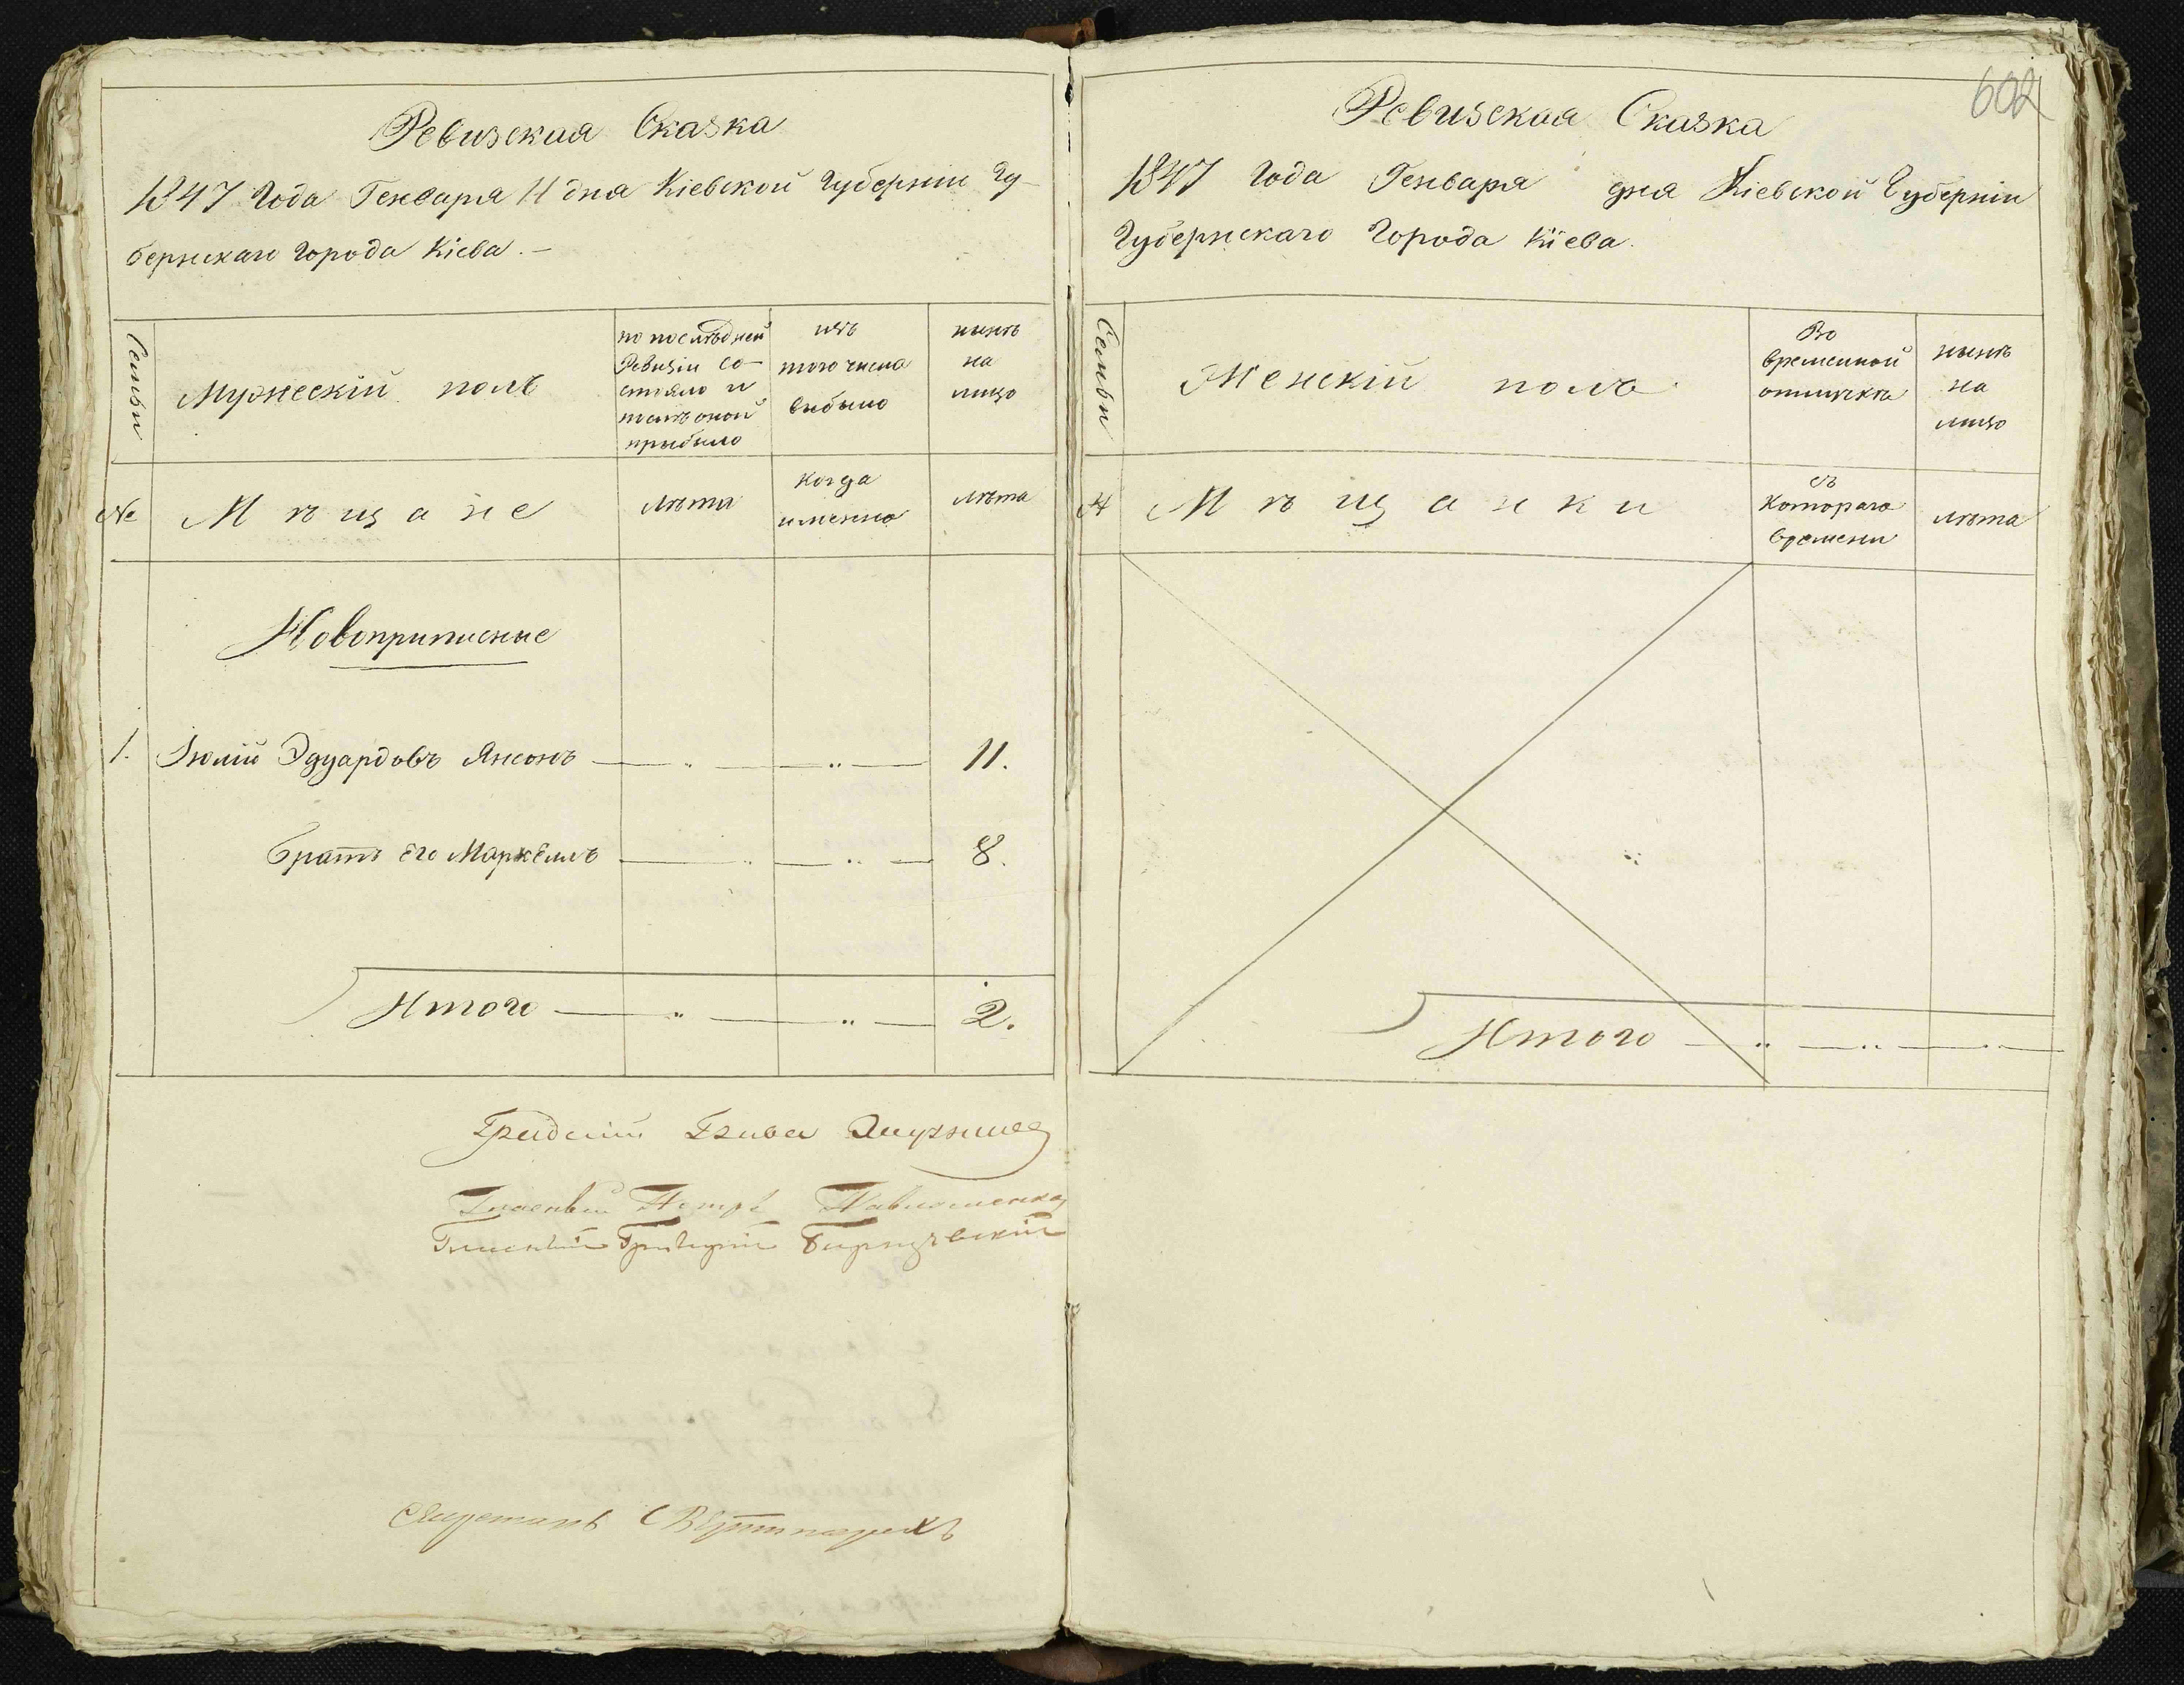 Ревизская Сказка
1847 Года Генваря 11 дня Кіевской Губерніи Гу-
бернскаго Города Кіева. —
Семьи
Мужескій полъ
по последней
Ревизіи со-
стояло и
после оной
прибыло
изъ
того числа
выбыло
нынѣ
на
лицо
№
Мѣщане
лѣта
когда
именно
лѣта
Новоприписные
1. Юлій Эдуардовъ Янсонъ — „ — „ — 11.
братъ его Маркелъ — „ — „ — 8.
Итого — „ — „ — 2.
Градскій Глава
Гласный Петръ Павломенко
Гласный Григорій
602
Ревизская Сказка
1847 Года Генваря дня Кіевской Губерніи
Губернскаго Города Кіева.
Семьи
Женскій полъ
Во
временной
отлучкѣ
нынѣ
на
лицо
№
Мѣщанки
съ
котораго
времени
лѣта
Итого — „ — „ — „ —